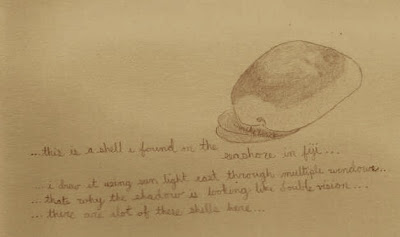 ...this is a shell i found on the seashore in fiji...
...i draw it using sun light cast through multiple windows...
...thats why the shadow is looking like double vision...
...there are alot of these shells here...